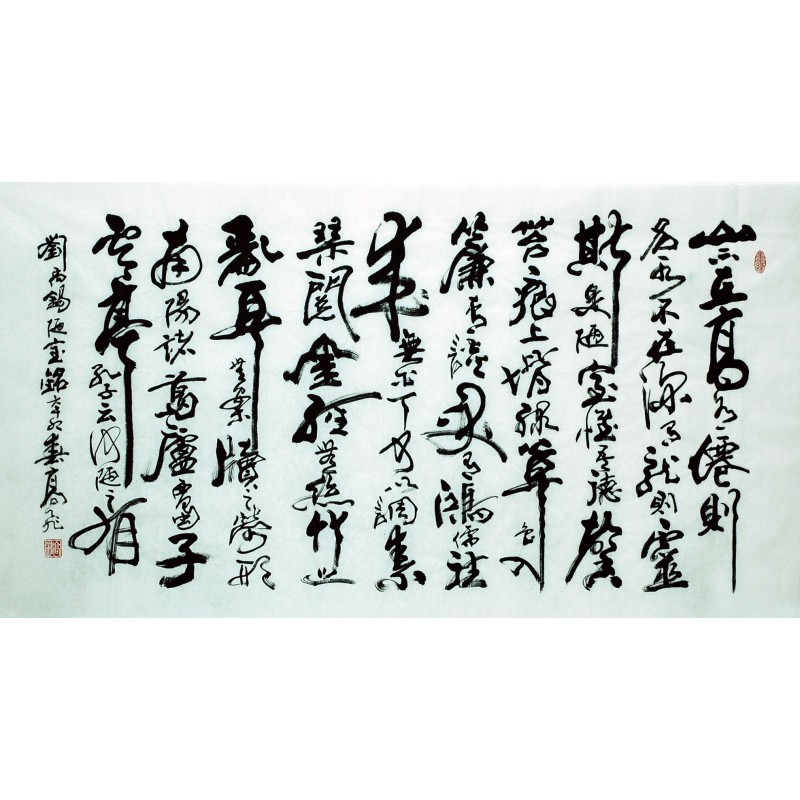 山不在高有僊則
名水不在深有龍則靈
斯是陋室惟吾德馨
苔痕上階綠草色入
簾青談笑有鴻儒往
來無白丁可以調素
琴閱金經無絲竹之
亂耳無案牘之勞形
南陽諸葛廬西蜀子
雲亭孔子云何陋之有
劉禹錫陋室銘辛卯春高飛